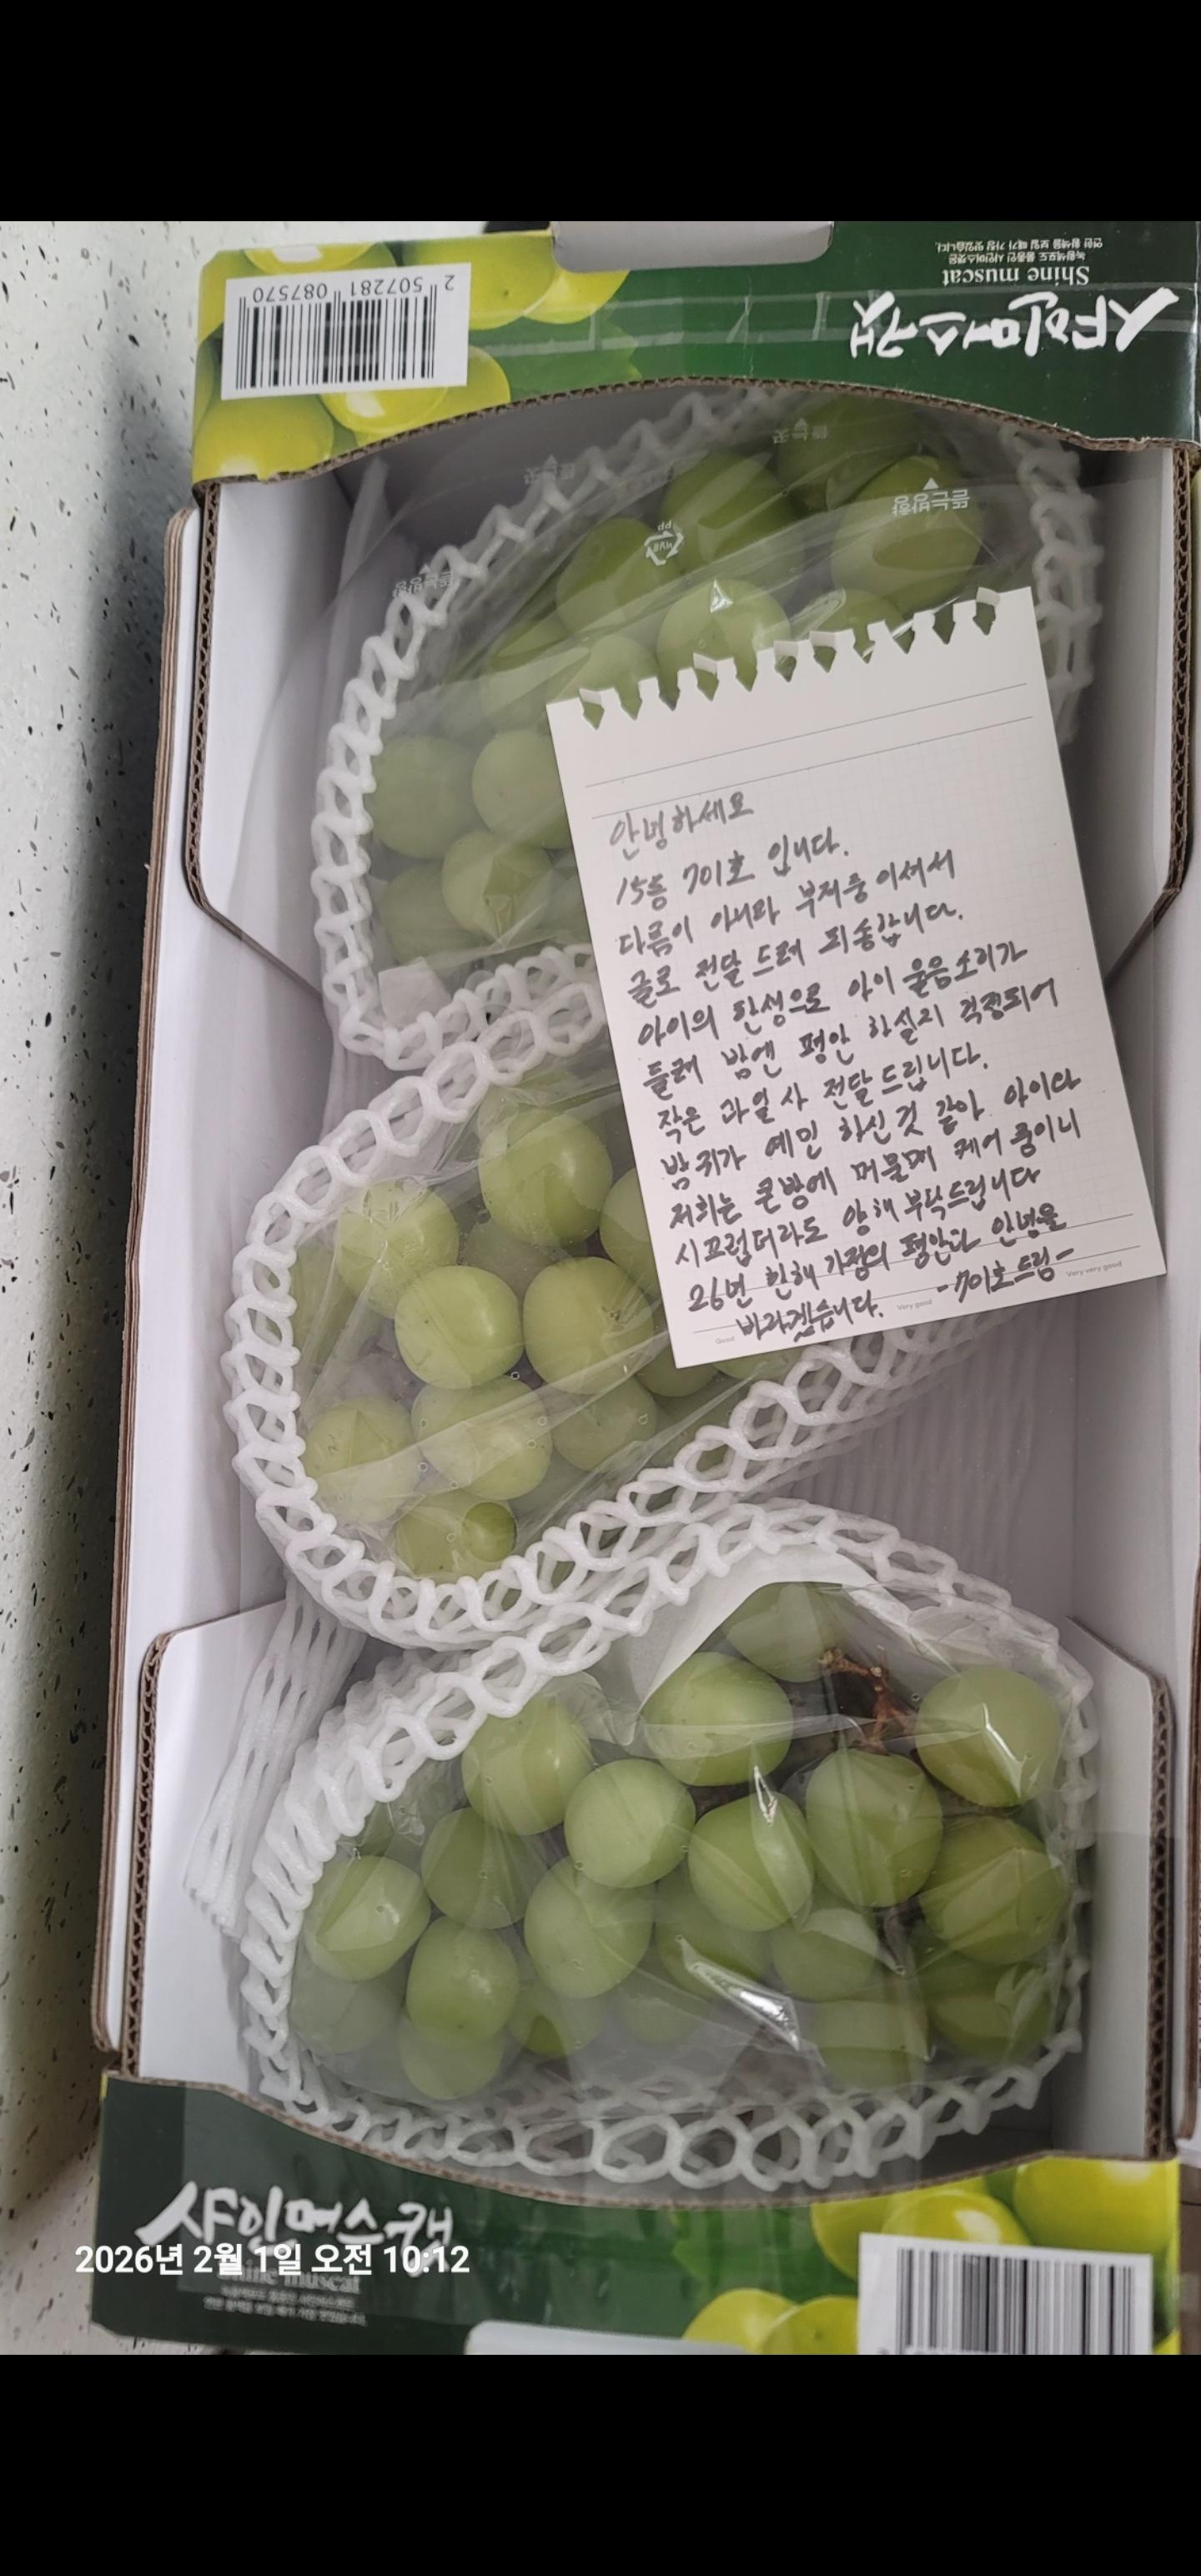 2 507281 087570
샤인머스캣
Shine muscat
뜯는곳
뜯는곳
뜯는방향
뜯는방향
PP
안녕하세요
15동 701호 입니다.
다름이 아니라 부재중이셔서
글로 전달드려 죄송합니다.
아이의 탄생으로 아이 울음소리가
들려 밤엔 평안 하실지 걱정되어
작은 과일 사 전달 드립니다.
밤귀가 예민 하신것 같아 아이랑
저희는 큰방에 머물며 케어 중이니
시끄럽더라도 양해 부탁드립니다
26년 한해 가정의 평안과 안녕을
바라겠습니다. -701호 드림-
Good Very good Very very good
샤인머스캣
2026년 2월 1일 오전 10:12
muscat